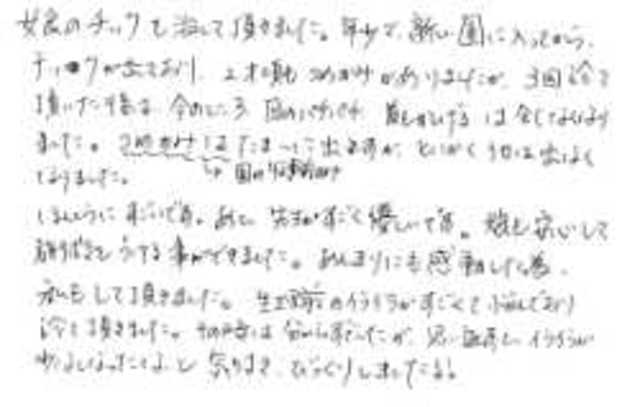 娘のチックを治して頂きました。年少で、新しい園に入ってから、
チックが出ており、2才頃も つめかみがありましたが、3回診て
頂いた後は、今のところ 目のパチパチ 首をかしげる は全くなくなり
ました。つめかみはたまに出ますが、とにかく は出なく
なりました。 → 園の行事前だけ
ほんとうに すごいです。あと、先生がすごく優しいです。娘も安心して
を うける事ができました。あまりにも感動した為、
私もして頂きました。生理前のイライラがすごくて悩んでおり
診て頂きました。その時は 分からなかったが、思い返すと、イライラが
少なくなったなぁ と 気づきまして、びっくりしました!!